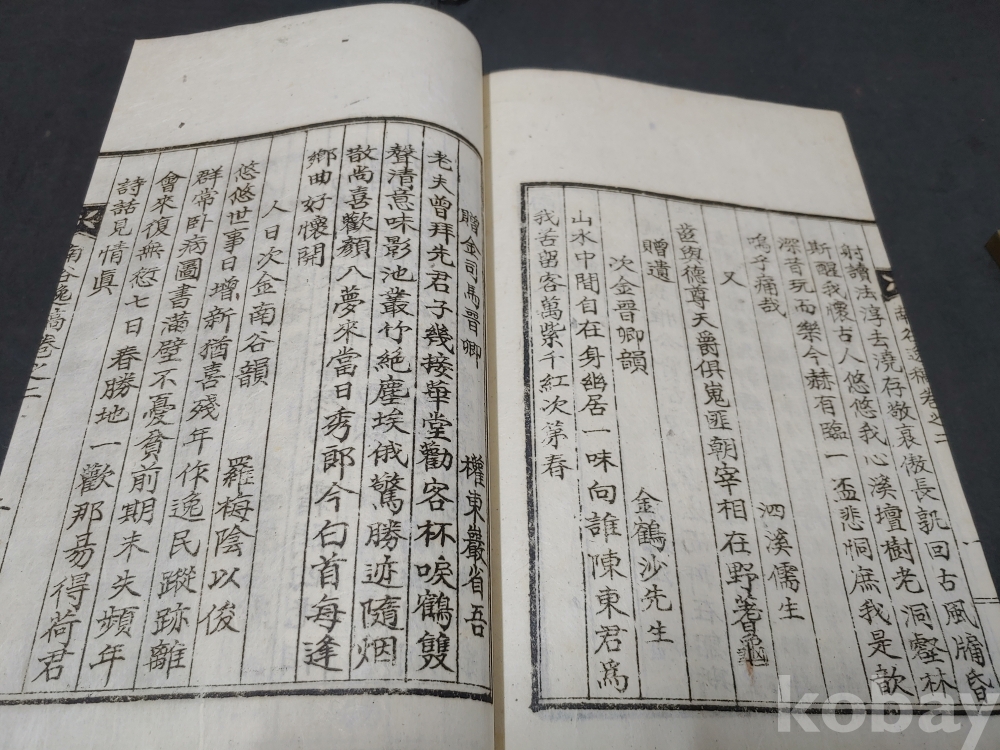 射讀法淳去澆存敬哀傲長孰回古風牖昏
斯醒我懷古人悠悠我心溪壇樹老洞壑林
深昔玩而樂今赫有臨一盃悲恫庶我是歆
嗚乎痛哉 泗溪儒生
又
齒與德尊天爵俱嵬匪朝宰相在野蓍龜
贈遺 金鶴沙先生
次金晋卿韻
山水中間自在身幽居一味向誰陳東君爲
我苦留客萬紫千紅次第春
贈金司馬晋卿 權東巖省吾
老夫曾拜先君子幾接華堂勸客杯唳鶴雙
聲清意味影池叢竹絶塵埃俄驚勝迹隨烟
散尚喜歡顔入夢來當日秀郎今白首每逢
鄉曲好懷開
人日次金南谷韻 羅梅陰以俊
悠悠世事日增新猶喜殘年作逸民蹤跡離
群常卧病圖書滿壁不憂貧前期未失頻年
會來復無愆七日春勝地一歡那易得荷君
詩話見情眞
南谷逸稿卷之二
kobay